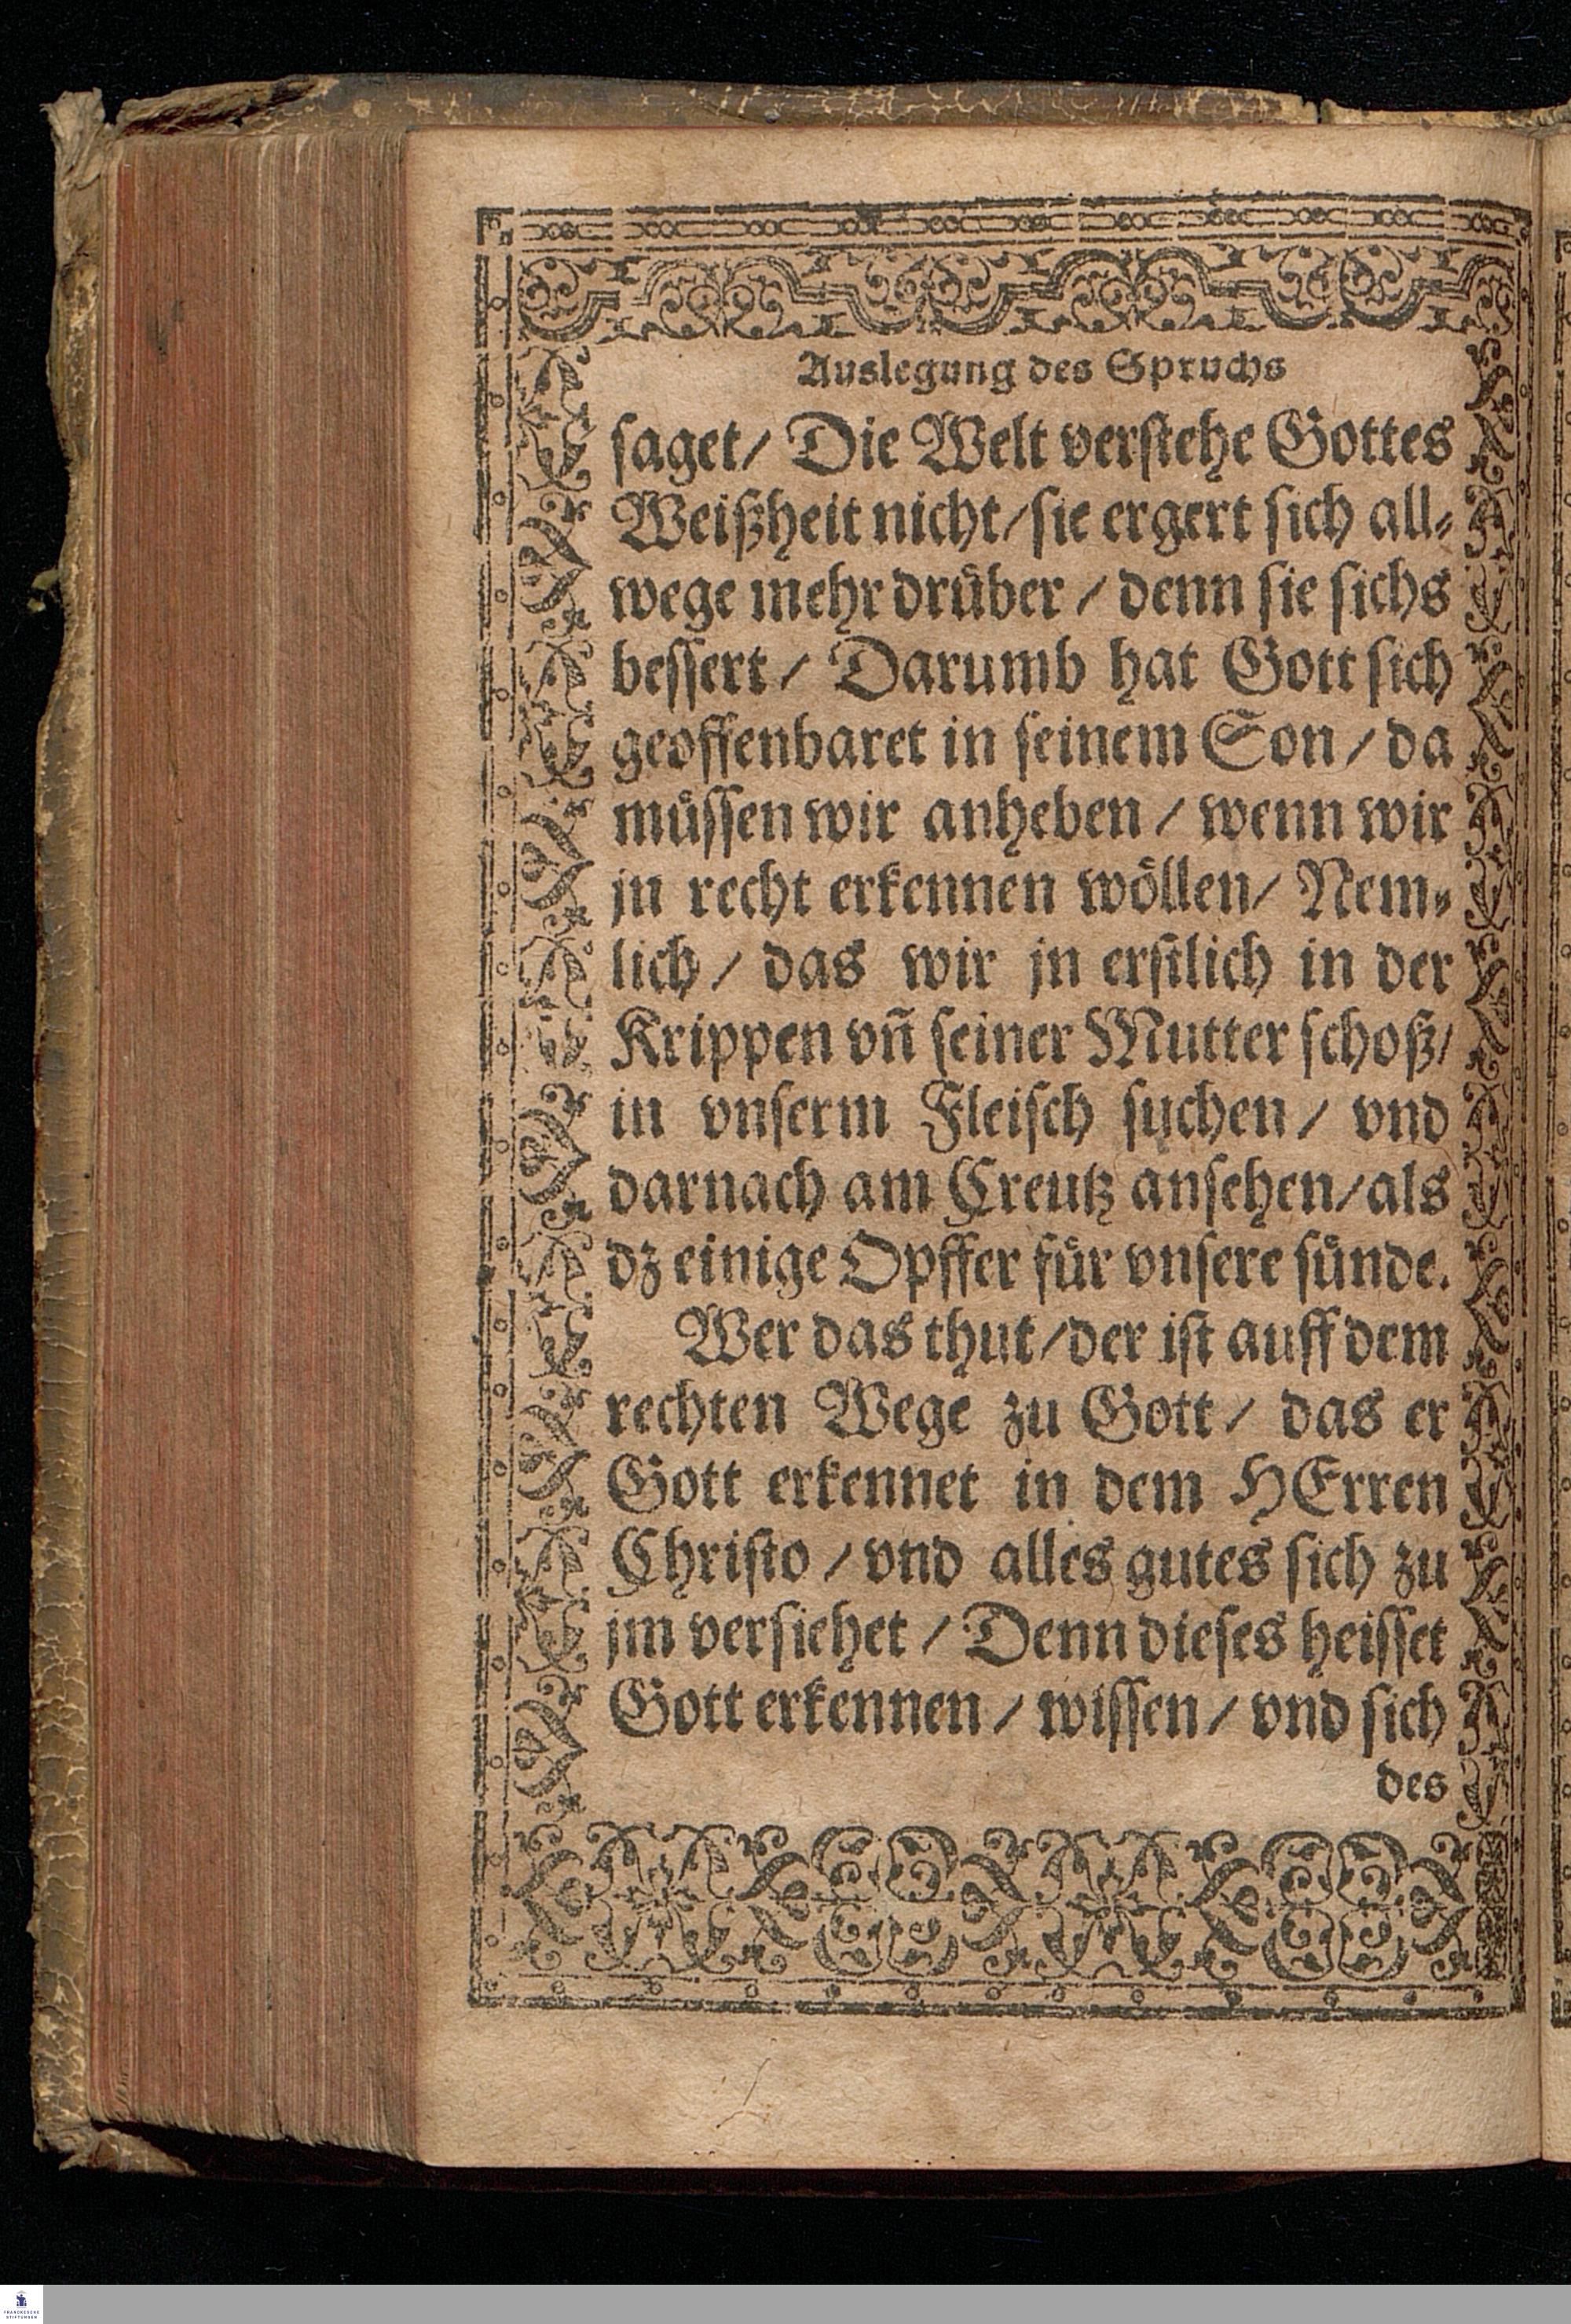 Auslegung des Spruchs
saget/ Die Welt verstehe Gottes
Weißheit nicht/ sie ergert sich all-
wege mehr drüber / denn sie sichs
bessert / Darumb hat Gott sich
geoffenbaret in seinem Son / da
müssen wir anheben / wenn wir
jn recht erkennen wöllen/ Nem-
lich / das wir jn erstlich in der
Krippen vñ seiner Mutter schoß/
in vnserm Fleisch suchen / vnd
darnach am Creutz ansehen/ als
dz einige Opffer für vnsere sünde.
Wer das thut / der ist auff dem
rechten Wege zu Gott / das er
Gott erkennet in dem HErren
Christo / vnd alles gutes sich zu
jm versiehet / Denn dieses heisset
Gott erkennen / wissen / vnd sich
des
FRANCKESCHE
STIFTUNGEN